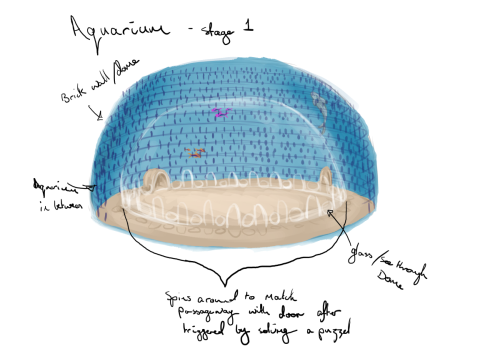 Aquarium - stage 1
Brick wall/dome
Aquarium
in between
glass/see through
Dome
Spins around to match
passageway with door after
triggered by solving a puzzel